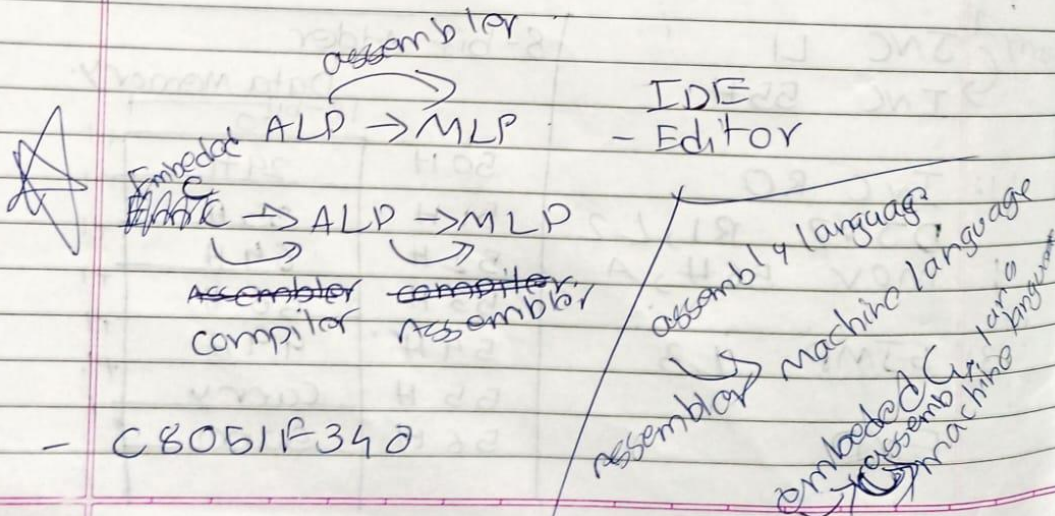 assembler
ALP → MLP
IDE
- Editor
Embeded
C → ALP → MLP
Assembler compiler
compiler Assembler
- C8051F340
assembly language
Assembler machine language
embeded C
assembly lang
machine language